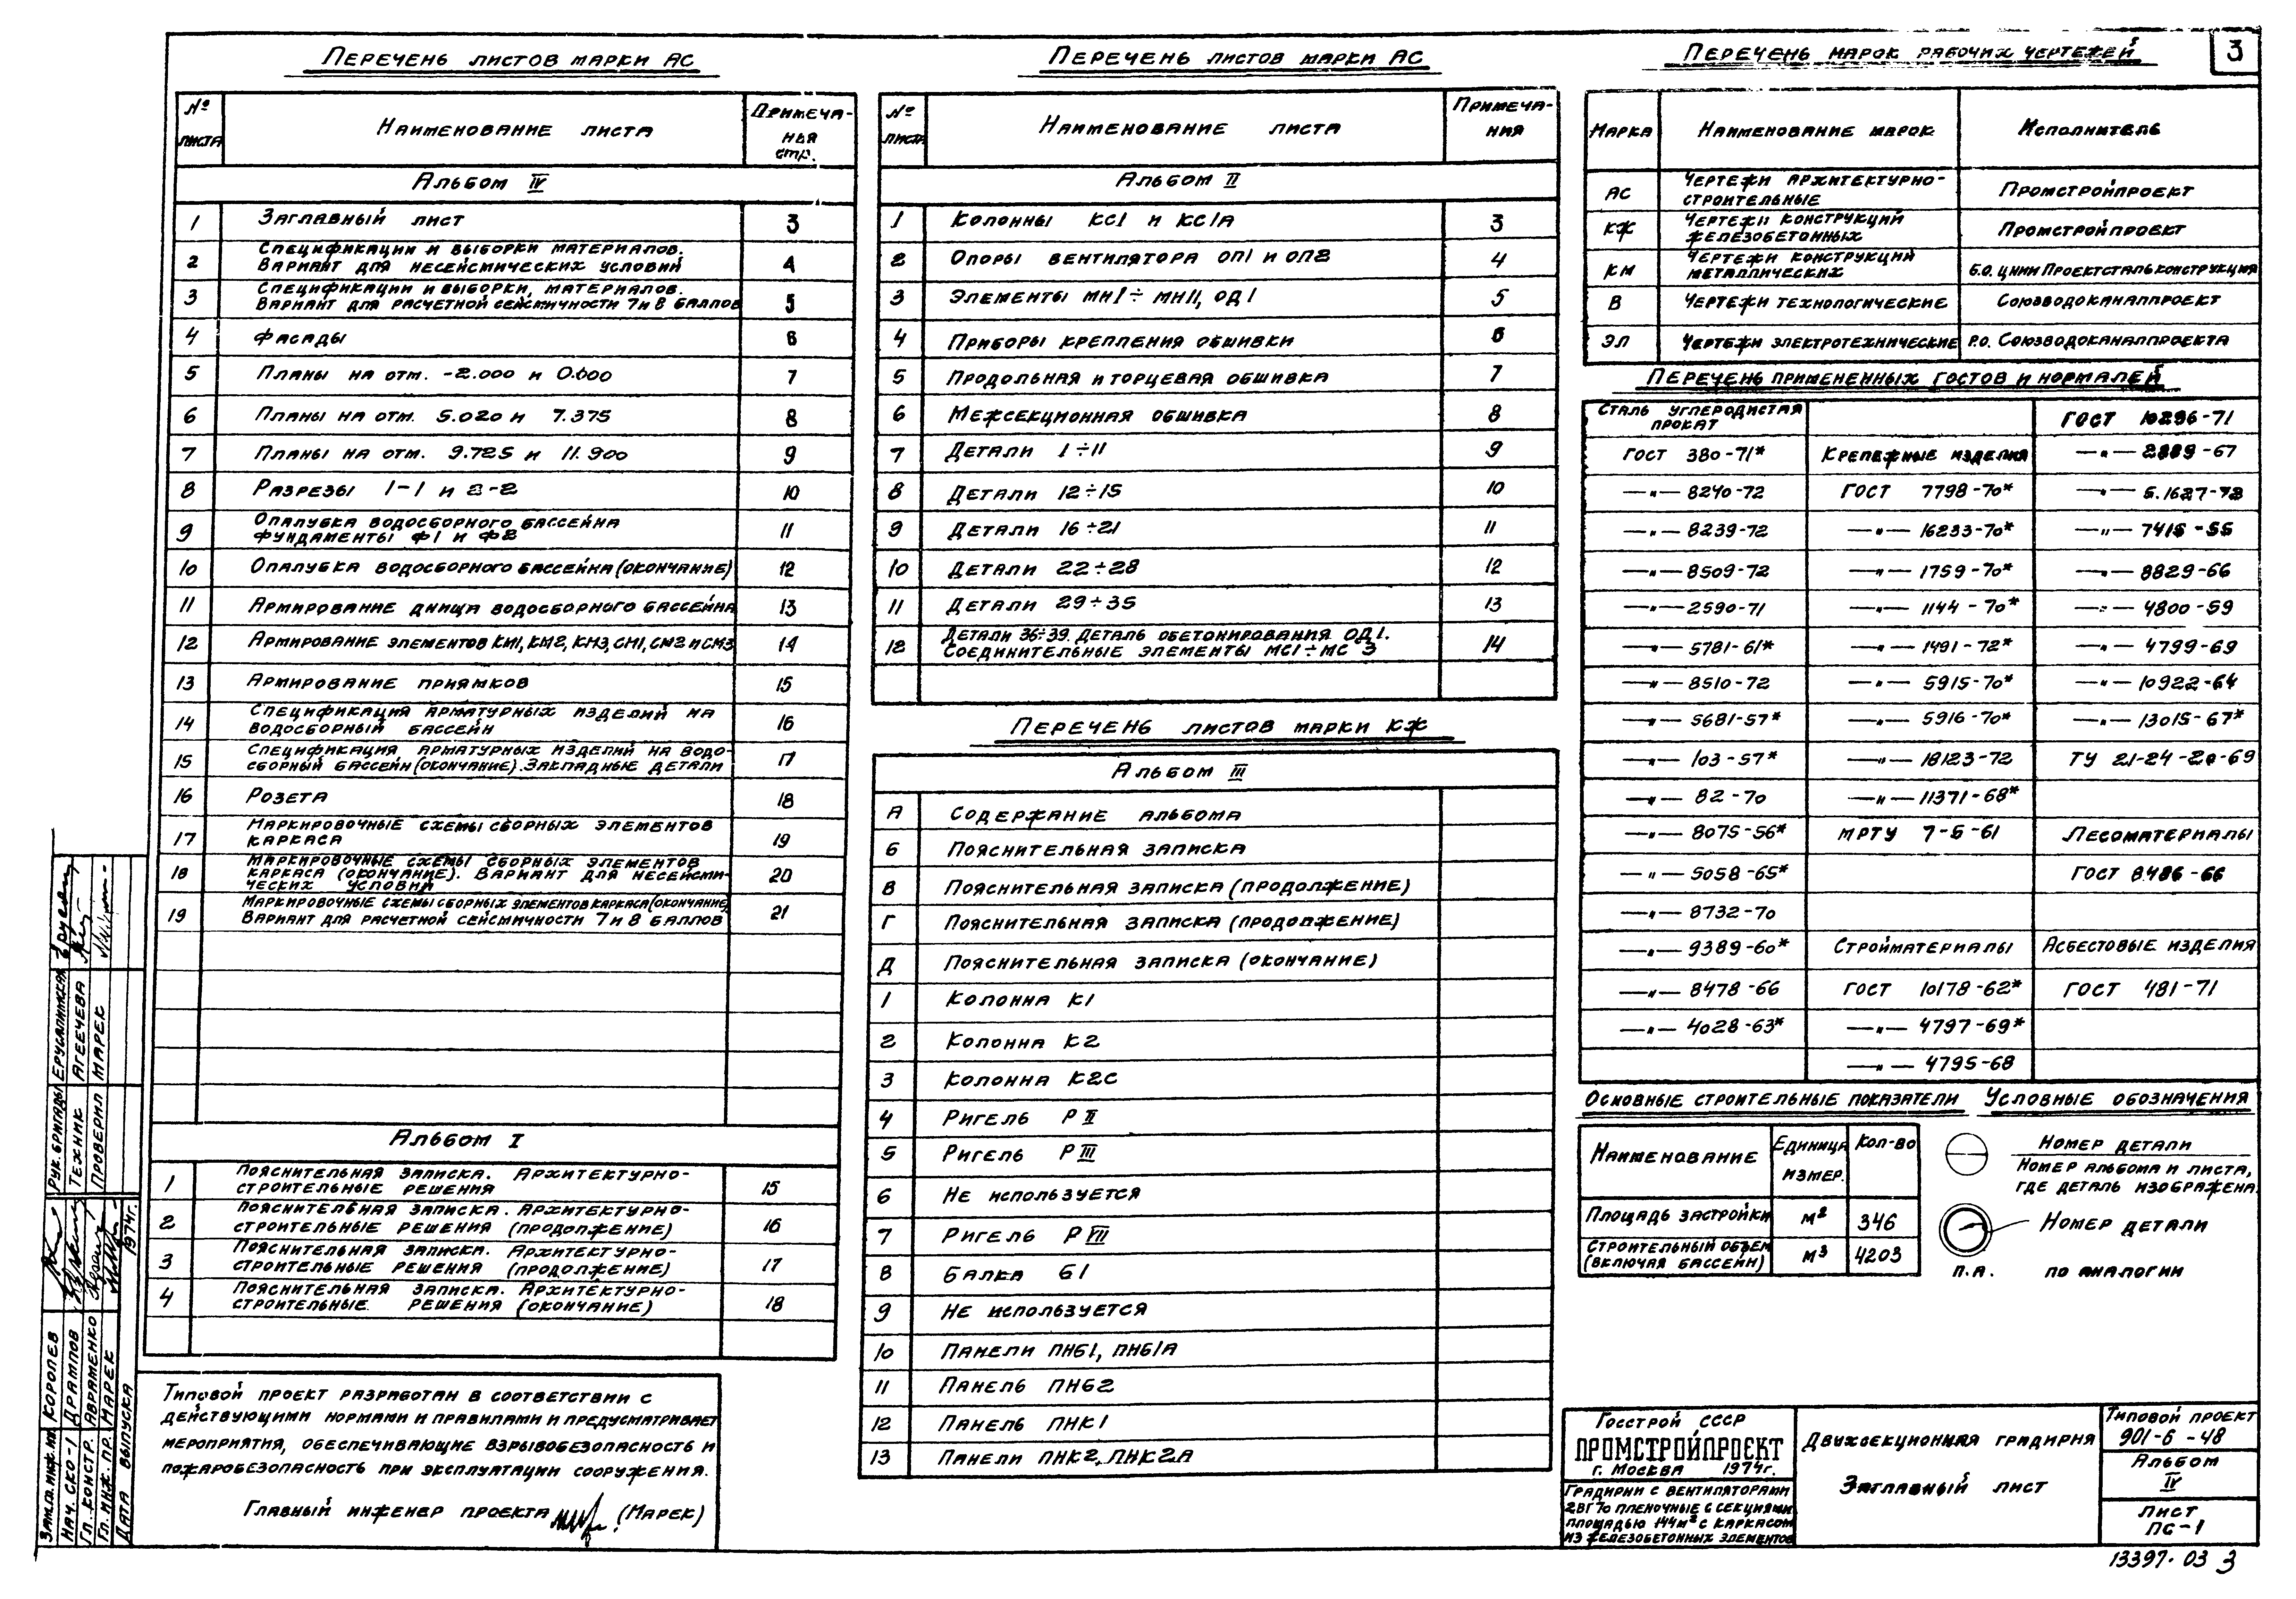 3
Перечень листов марки АС
№ листа
Наименование листа
Примечанья стр.
Альбом IV
1 Заглавный лист 3
2 Спецификации и выборки материалов.
Вариант для несейсмических условий 4
3 Спецификации и выборки, материалов.
Вариант для расчетной сейсмичности 7 и 8 баллов 5
4 Фасады 6
5 Планы на отм. -2.000 и 0.000 7
6 Планы на отм. 5.020 и 7.375 8
7 Планы на отм. 9.725 и 11.900 9
8 Разрезы 1-1 и 2-2 10
9 Опалубка водосборного бассейна
фундаменты Ф1 и Ф2 11
10 Опалубка водосборного бассейна (окончание) 12
11 Армирование днища водосборного бассейна 13
12 Армирование элементов КМ1, КМ2, КМ3, СМ1, СМ2 и СМ3 14
13 Армирование приямков 15
14 Спецификация арматурных изделий на
водосборный бассейн 16
15 Спецификация арматурных изделий на водо-
сборный бассейн (окончание). Закладные детали 17
16 Розета 18
17 Маркировочные схемы сборных элементов
каркаса 19
18 Маркировочные схемы сборных элементов
каркаса (окончание). Вариант для несейсми-
ческих условий 20
19 Маркировочные схемы сборных элементов каркаса (окончание)
Вариант для расчетной сейсмичности 7 и 8 баллов 21
Альбом I
1 Пояснительная записка. Архитектурно-
строительные решения 15
2 Пояснительная записка. Архитектурно-
строительные решения (продолжение) 16
3 Пояснительная записка. Архитектурно-
строительные решения (продолжение) 17
4 Пояснительная записка. Архитектурно-
строительные решения (окончание) 18
Типовой проект разработан в соответствии с
действующими нормами и правилами и предусматривает
мероприятия, обеспечивающие взрывобезопасность и
пожаробезопасность при эксплуатации сооружения.
Главный инженер проекта (Марек)
Перечень листов марки АС
№ листа
Наименование листа
Примечания
Альбом II
1 Колонны КС1 и КС1А 3
2 Опоры вентилятора ОП1 и ОП2 4
3 Элементы МН1÷МН11, ОД1 5
4 Приборы крепления обшивки 6
5 Продольная и торцевая обшивка 7
6 Межсекционная обшивка 8
7 Детали 1÷11 9
8 Детали 12÷15 10
9 Детали 16÷21 11
10 Детали 22÷28 12
11 Детали 29÷35 13
12 Детали 36÷39. Деталь обетонирования ОД1.
Соединительные элементы МС1÷МС3 14
Перечень листов марки КЖ
Альбом III
А Содержание альбома
Б Пояснительная записка
В Пояснительная записка (продолжение)
Г Пояснительная записка (продолжение)
Д Пояснительная записка (окончание)
1 Колонна К1
2 Колонна К2
3 Колонна К2С
4 Ригель Р II
5 Ригель Р III
6 Не используется
7 Ригель Р VII
8 Балка Б1
9 Не используется
10 Панели ПНБ1, ПНБ1А
11 Панель ПНБ2
12 Панель ПНК1
13 Панели ПНК2, ПНК2А
Перечень марок рабочих чертежей
Марка
Наименование марок
Исполнитель
АС Чертежи архитектурно-
строительные Промстройпроект
КЖ Чертежи конструкций
железобетонных Промстройпроект
КМ Чертежи конструкций
металлических Б.О. ЦНИИПроектстальконструкция
В Чертежи технологические Союзводоканалпроект
ЭЛ Чертежи электротехнические Р.О. Союзводоканалпроекта
Перечень примененных ГОСТов и нормалей
Сталь углеродистая
прокат ГОСТ 10296-71
ГОСТ 380-71* Крепежные изделия —"— 2889-67
—"— 8240-72 ГОСТ 7798-70* —"— 5.1627-72
—"— 8239-72 —"— 16233-70* —"— 7415-55
—"— 8509-72 —"— 1759-70* —"— 8829-66
—"— 2590-71 —"— 1144-70* —"— 4800-59
—"— 5781-61* —"— 1491-72* —"— 4799-69
—"— 8510-72 —"— 5915-70* —"— 10922-64
—"— 5681-57* —"— 5916-70* —"— 13015-67*
—"— 103-57* —"— 18123-72 ТУ 21-24-20-69
—"— 82-70 —"— 11371-68*
—"— 8075-56* МРТУ 7-5-61 Лесоматериалы
—"— 5058-65* ГОСТ 8486-66
—"— 8732-70
—"— 9389-60* Стройматериалы Асбестовые изделия
—"— 8478-66 ГОСТ 10178-62* ГОСТ 481-71
—"— 4028-63* —"— 4797-69*
—"— 4795-68
Основные строительные показатели
Наименование Единица измер. Кол-во
Площадь застройки м² 346
Строительный объем
(включая бассейн) м³ 4203
Условные обозначения
Номер детали
Номер альбома и листа,
где деталь изображена
Номер детали
п.а. по аналогии
Госстрой СССР
ПРОМСТРОЙПРОЕКТ
г. Москва 1974г.
Градирни с вентиляторами
2ВГ70 пленочные с секциями
площадью 144м² с каркасом
из железобетонных элементов
Двухсекционная градирня
Заглавный лист
Типовой проект
901-6-48
Альбом
IV
Лист
ПС-1
13397-03 3
Рук. бригады Ерусалимская
Техник Агеечева
Проверил Марек
Зам. гл. инж. ин. Королев
Нач. СКО-1 Дрампов
Гл. констр. Авраменко
Гл. инж. пр. Марек
Дата выпуска 1974г.